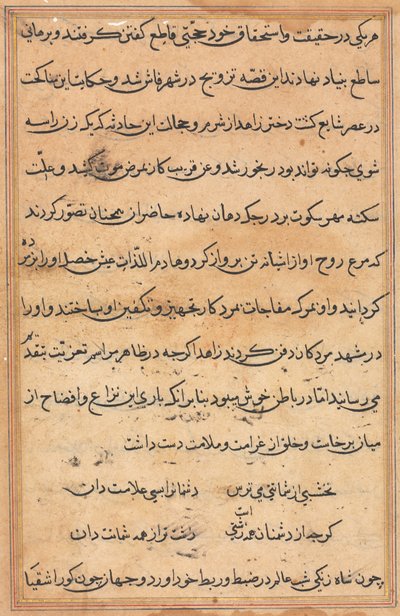 هر یکی در حقیقت و استحقاق خود حجتی قاطع کفتن کرفتند و برهانی
ساطع بنیاد نهادند این قصه تزویج در شهر فاش شد و حکایت این مناکحت
در عصر شایع کشت دختر زاهد از شرم و خجالت این حادثه که یک زن را سه
شوی چکونه تواند بود رنجور شد و عن قریب کار بمرض موت کشید و علت
سکته مهر سکوت بر درجک دهان نهاده حاضران همچنان تصور کردند
که مرغ روح او از اشیانه تن پرواز کرد و هادم اللذات عیش خصل او را پژمرده
کردانید و او نمرد که مفاجات نمرد کار تجهیز و تکفین او بساختند و او را
در مشهد مردکان دفن کردند زاهد اکرچه در ظاهر مراسم تعزیت بتقدیم
می رسانید اما در باطن خوش میبود بنابر انکه باری این نزاع و افضاح از
میان برخاست و خلق از غرامت و ملامت دست داشت
نخشبی از شماتتی می ترس دشمنان را بسی علامت دان
کرچه از دشمنان همه زشتی است زشت تر از همه شماتت دان
چون شاه زنکی شب عالم در ضبط و ربط خود اورد و جهان چون کور اشقیا